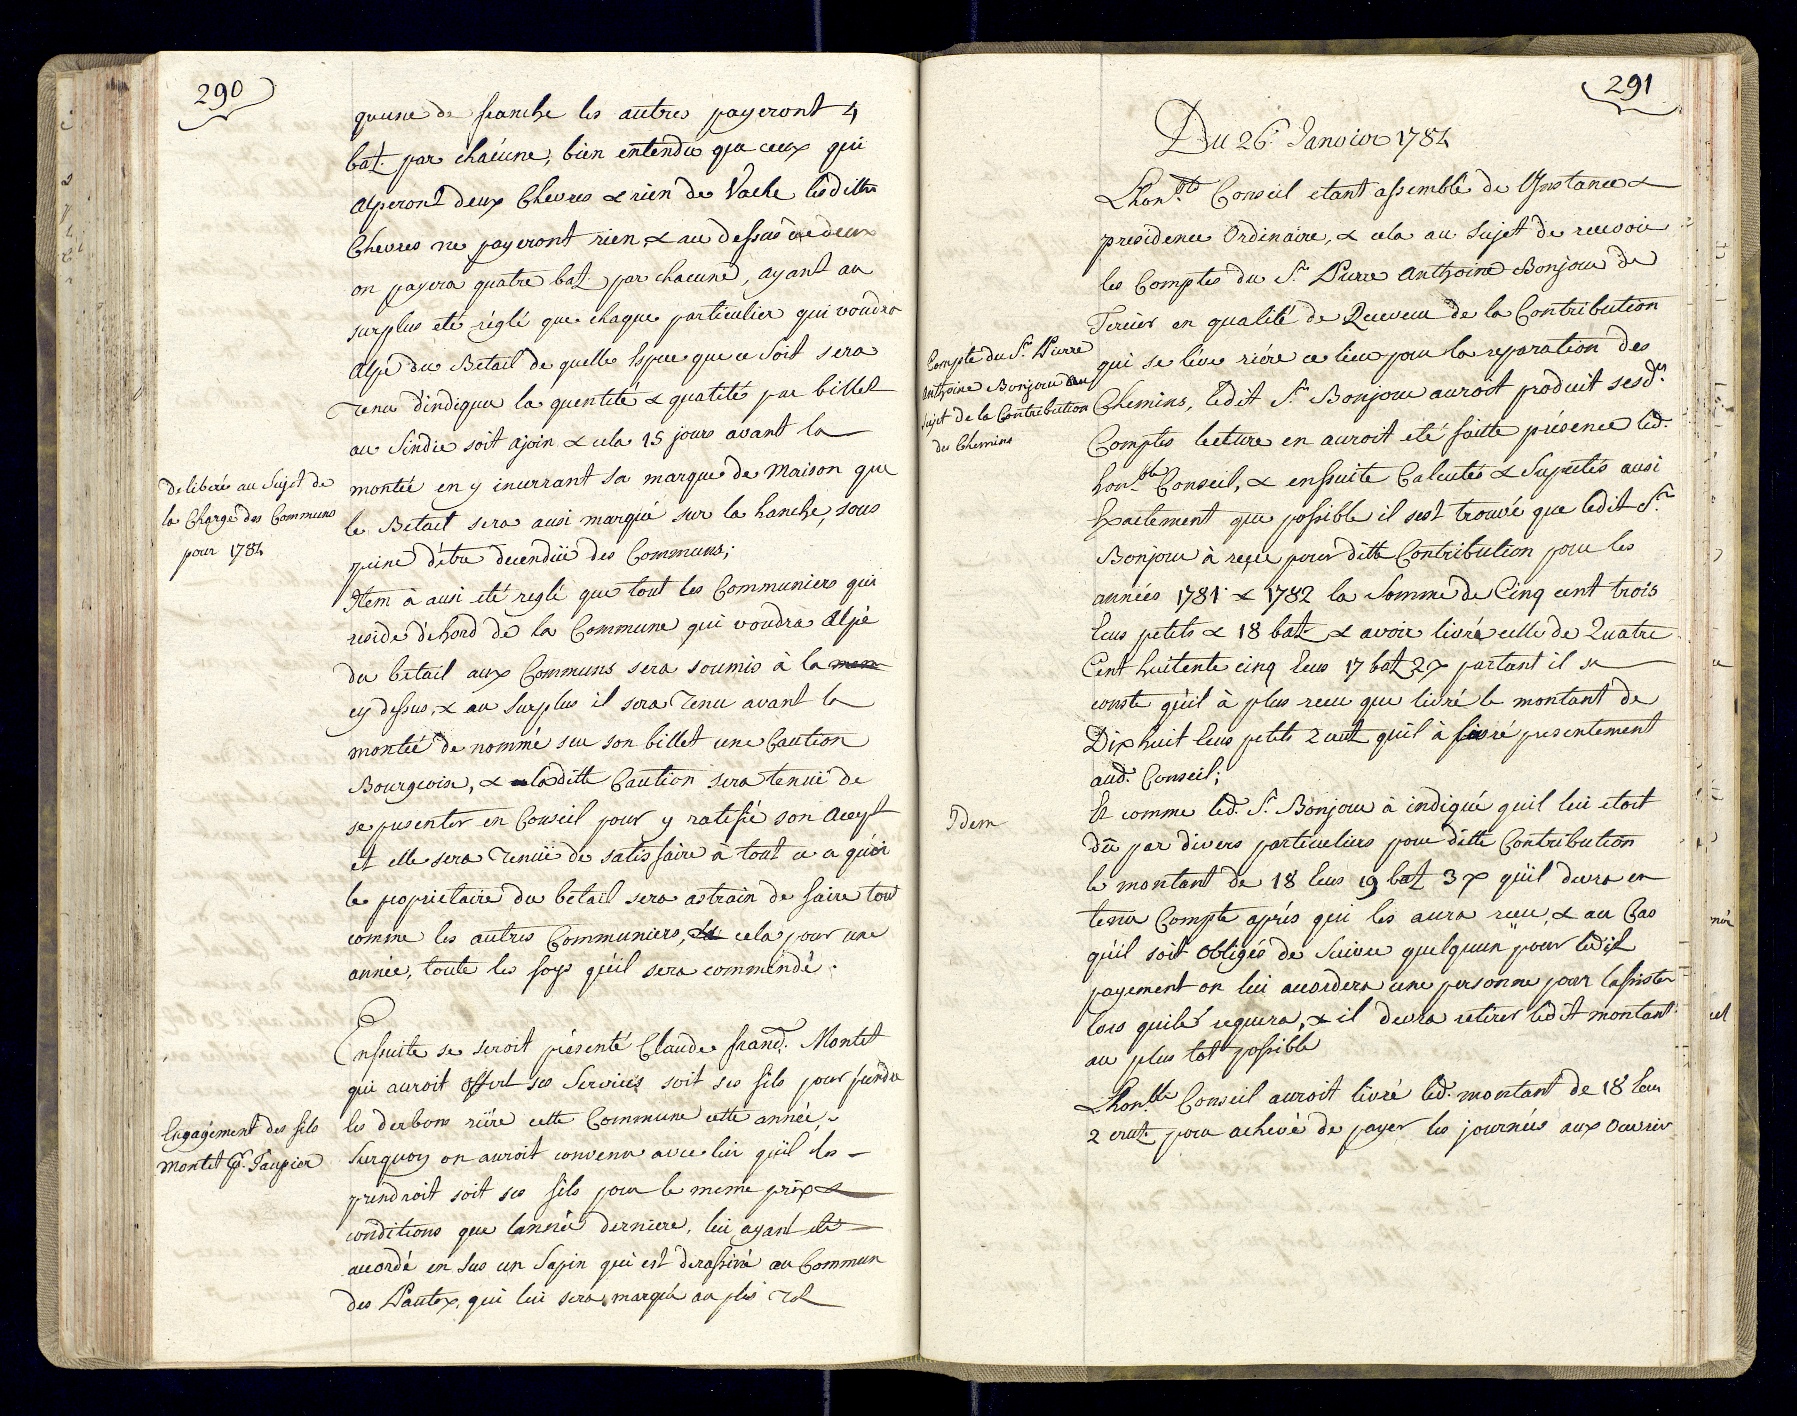 290
quune de franche les autres payeront 4
bat. par chacune, bien entendu que ceux qui
alperont deux Chevres & rien de Vache lesdittes
Chevres ne payeront rien & au dessus de deux
on payera quatre bat par chacune, ayant au
surplus eté réglé que chaque particulier qui voudra
Alpé du Betail de quelle Espece que ce soit sera
tenu d'indiquer la quentité & qualité par billet
au Sindic soit ajoin & cela 15 jours avant la
Deliberé au Sujet de
la Charge des Communs
pour 1784
montée en y incurrant sa marque de Maison que
le Betail sera ausi marqué sur la hanche, sous
peine d'etre decendüe des Communs;
Item à ausi eté reglé que tout les Communiers qui
reside déhord de la Commune qui voudra Alpé
du betail aux Communs sera soumis à la
cy dessus, & au surplus il sera tenu avant la
montée de nommé sur son billet une Caution
Bourgeoise, & laditte Caution sera tenuë de
se presenter en Conseil pour y ratifié son Accept
et elle sera tenuë de satisfaire à tout ce a quoi
le propriétaire du bétail sera astrain de faire tout
comme les autres Communiers, & cela pour une
année, toute les foys qu'il sera commendé.
Ensuite se seroit présenté Claude francd. Montet
qui auroit offert ses Services soit ses fils pour prendre
Engagement des fils
Montet p. Taupier
les derbons riére cette Commune cette année,
Surquoy on auroit convenu avec lui quil les
prendroit soit ses fils pour le meme prix &
conditions que lannée derniere, lui ayant eté
accordé en sus un Sapin qui est derassiné au Commun
des Pautex, qui lui sera marqué au plus tot
291
Du 26. Janvier 1784
Lhonble Conseil etant assemblé de Instance &
presidence Ordinaire, & cela au sujet de recevoir
les Comptes du Sr. Pierre Anthoine Bonjour de
Tercier en qualité de Receveur de la Contribution
Compte du Sr. Pierre
Anthoine Bonjour au
sujet de la Contribution
des Chemins
qui se léve riére ce lieu pour la reparation des
Chemins, ledit Sr. Bonjour auroit produit sesd.
Comptes lecture en auroit eté faitte présence led.
honble Conseil, & ensuite Calculés & Suputés ausi
Exactement que possible il sest trouvé que ledit Sr.
Bonjour à reçu pour ditte Contribution pour les
années 1781 & 1782 la Somme de Cinq cent trois
Ecus petits & 18 bat. & avoir livré celle de Quatre
Cent huitente cinq Ecus 17 bat 2 x partant il se
conste qu'il à plus recu que livré le montant de
Dixhuit Ecus petits 2 crut quil à livré presentement
aud. Conseil;
Idem
Et comme led. Sr. Bonjour à indiqué quil lui etoit
dû par divers particuliers pour ditte Contribution
le montant de 18 Ecus 19 bat 3 x qu'il devra en
tenir Compte aprés qui les aura recu, & au Cas
qu'il soit Obligés de Suivre quelquun pour ledit
payement on lui accordera une personne pour lassister
lors quil requera, & il devra retirer ledit montant
au plus tot possible
Lhonble Conseil auroit livré led. montant de 18 Ecus
2 crut. pour achevé de payer les journées aux Ouvrier